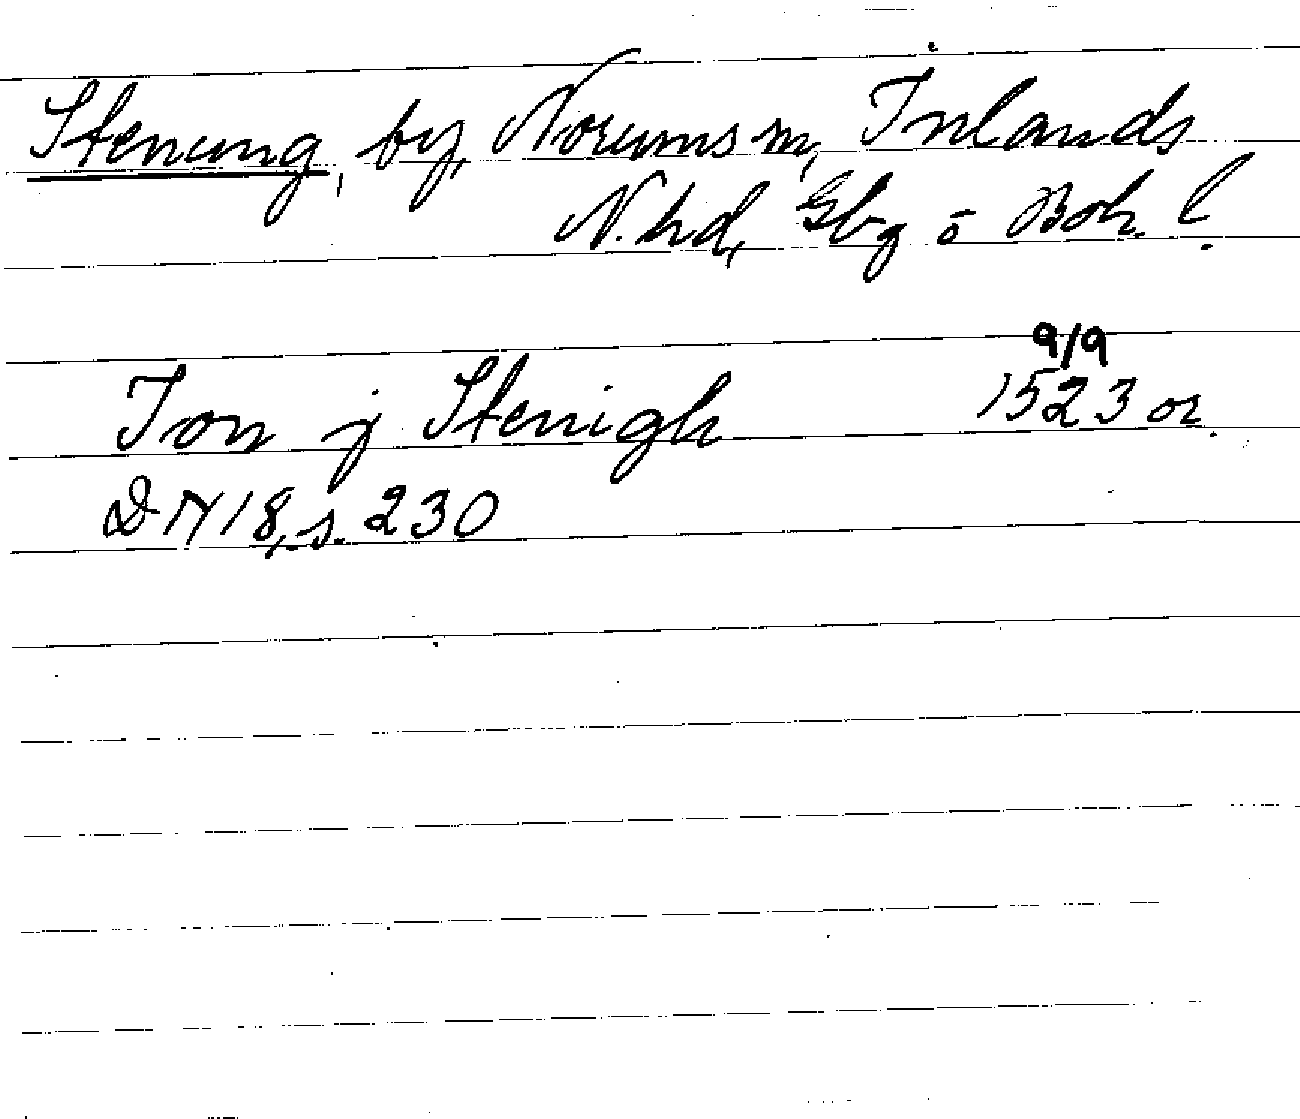 Stenung, by, Norums sn, Inlands
N. hd, Gbg o Boh. l.
9/9
Jon j Stenigh 1523 or.
DN 18, s. 230